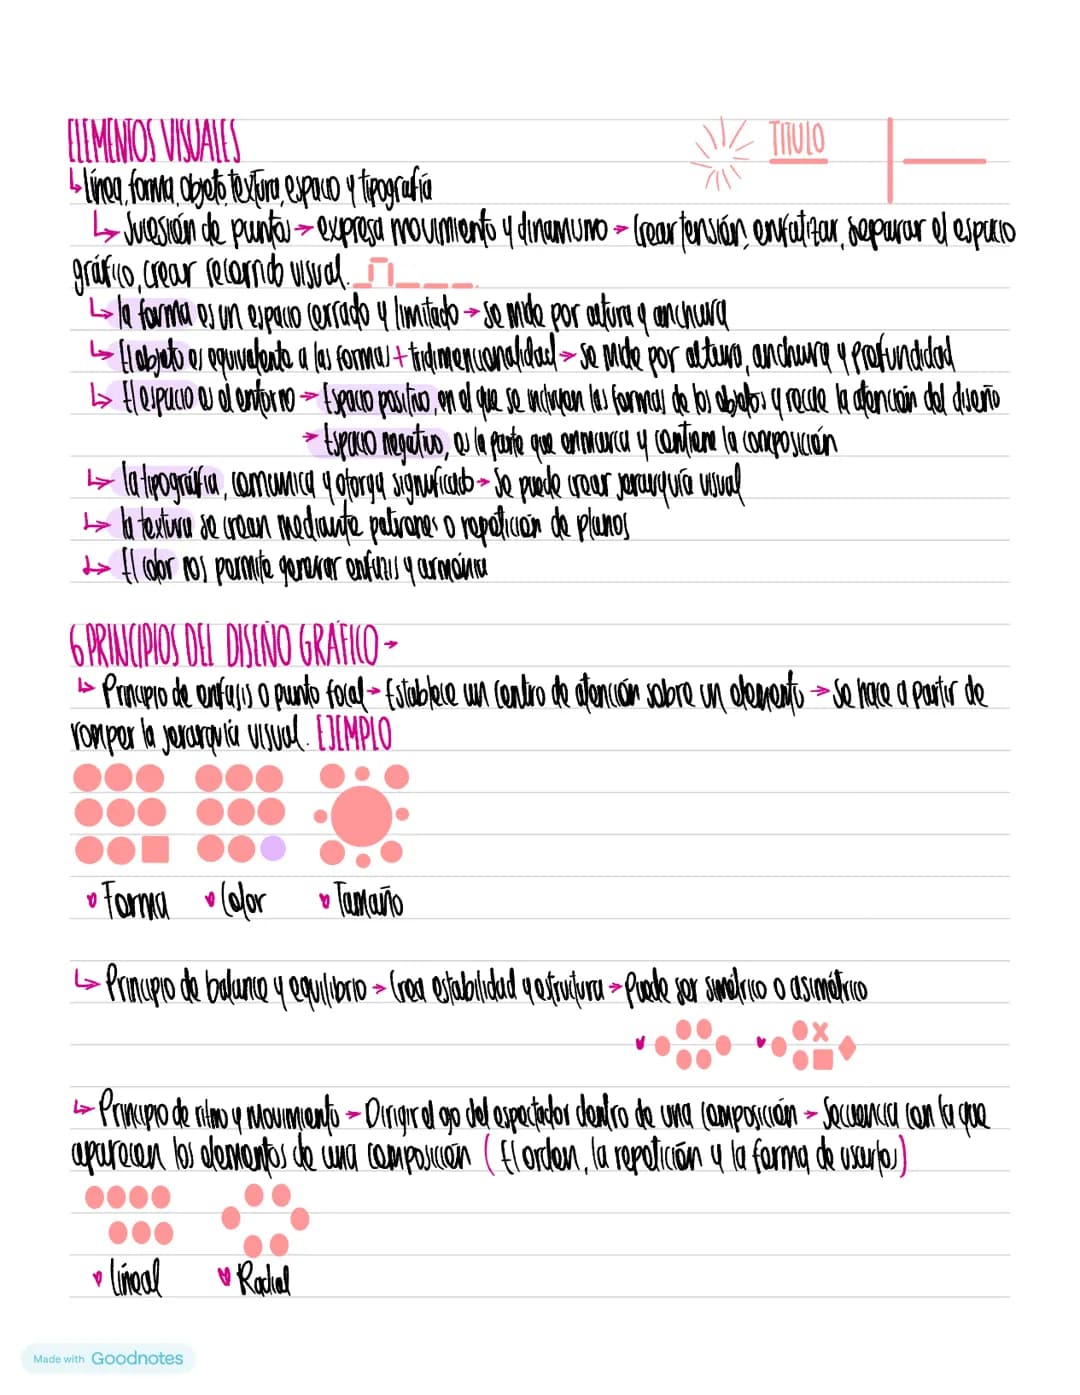 ELEMENTOS VISUALES
TITULO
línea, forma, objeto, textura, espacio y tipografía
Sucesión de puntos → expresa movimiento y dinamismo → Crear tensión, enfatizar, separar el espacio
gráfico, crear recorrido visual.
la forma es un espacio cerrado y limitado → se mide por altura y anchura
El objeto es equivalente a las formas + tridimencionalidad → se mide por altura, anchura y profundidad
El espacio es el entorno → Espacio positivo, en el que se incluyen las formas de los objetos y recae la atención del diseño
→ Espacio negativo, es la parte que enmarca y contiene la composición
la tipografía, comunica y otorga significado → Se puede crear jerarquía visual
la textura se crean mediante patrones o repetición de planos
El color nos permite generar enfasis y armonía
6 PRINCIPIOS DEL DISEÑO GRÁFICO →
Principio de enfasis o punto focal → Establece un centro de atención sobre un elemento → Se hace a partir de
romper la jerarquía visual. EJEMPLO
Forma Color Tamaño
Principio de balance y equilibrio → Crea estabilidad y estructura → Puede ser simétrico o asimétrico
Principio de ritmo y movimiento → Dirigir el ojo del espectador dentro de una composición → Secuencia con la que
aparecen los elementos de una composición (El orden, la repetición y la forma de usarlos)
Lineal Radial
Made with Goodnotes